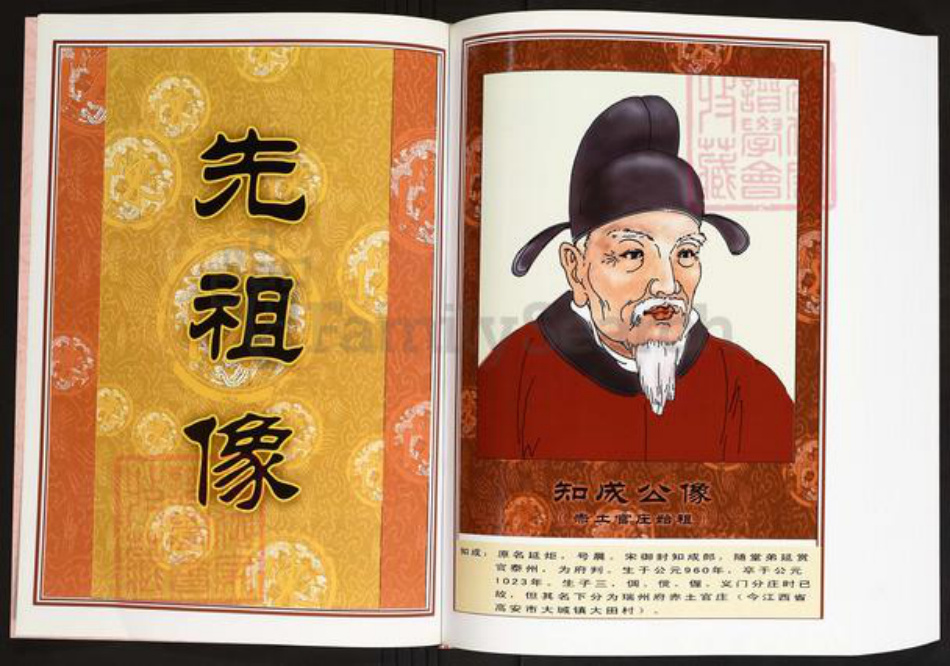 先祖像
知成公像
赤土官庄始祖
知成：原名延炬，号晨，宋御封知成郎，随堂弟延赏
官泰州，为府判，生于公元960年，卒于公元
1023年，生子三，倜、傥、偓，义门分庄时已
故，但其名下分为瑞州府赤土官庄（今江西省
高安市大城镇大田村）。
FamilySearch